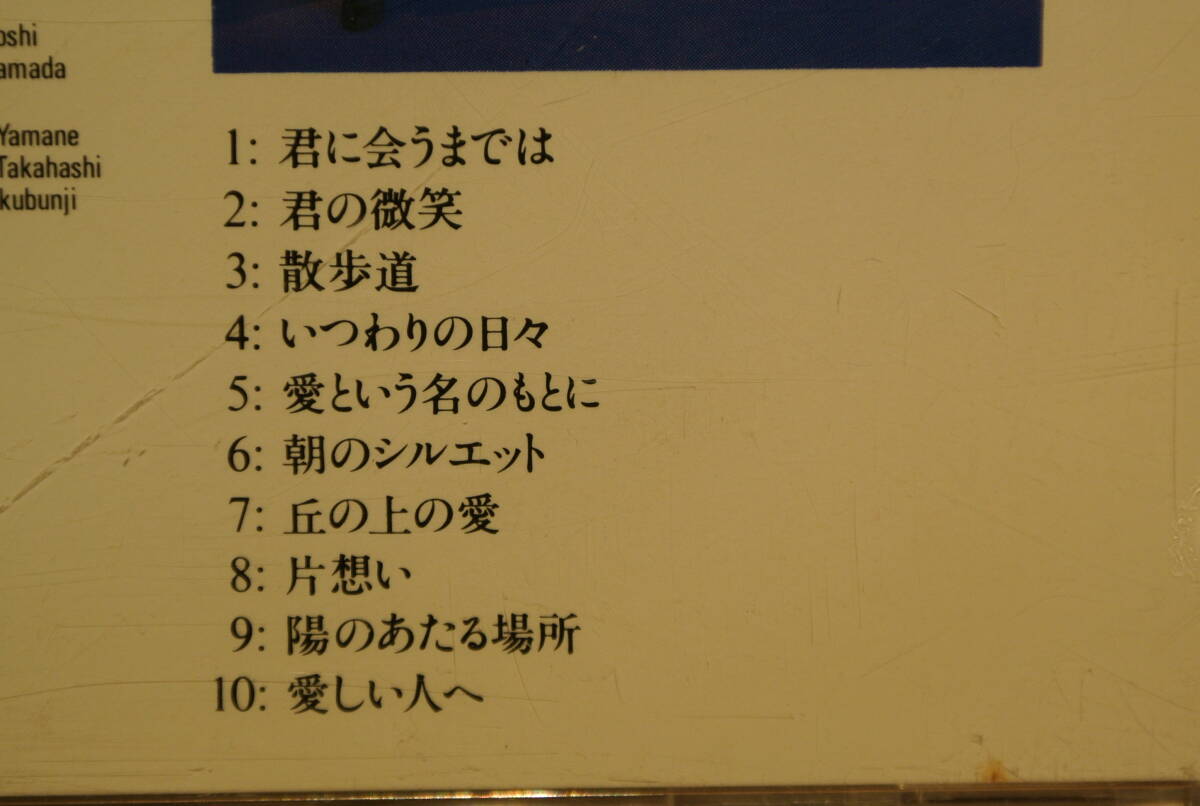 oshi
amada
Yamane
Takahashi
kubunji
1: 君に会うまでは
2: 君の微笑
3: 散歩道
4: いつわりの日々
5: 愛という名のもとに
6: 朝のシルエット
7: 丘の上の愛
8: 片想い
9: 陽のあたる場所
10: 愛しい人へ